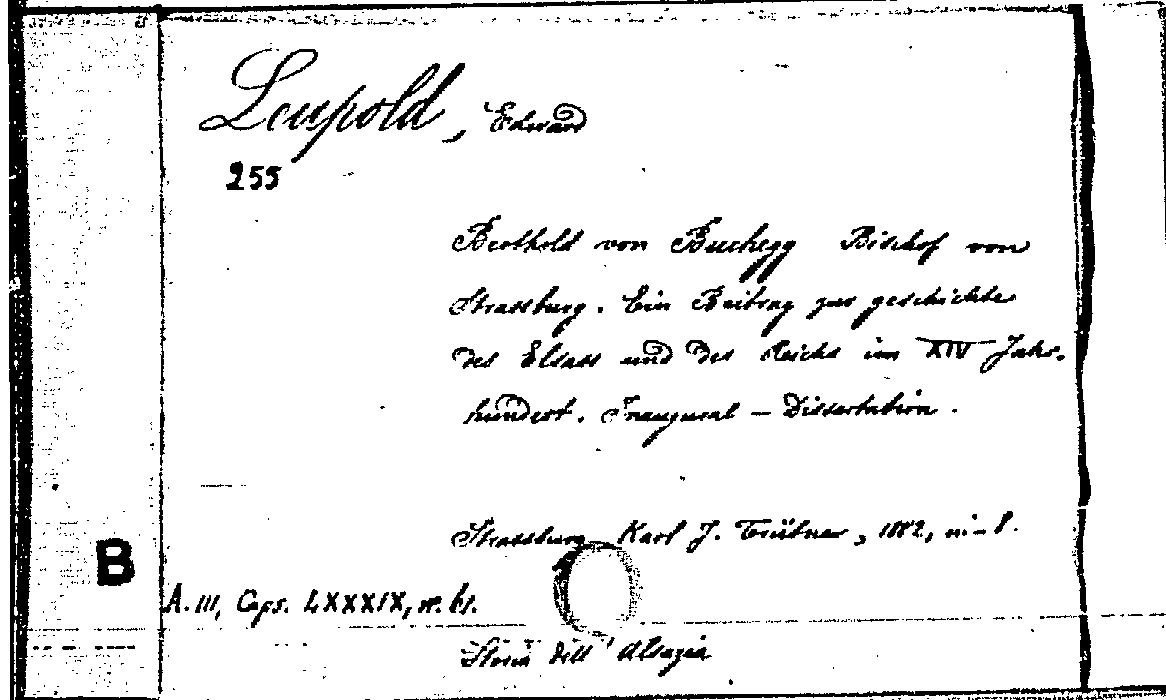 Leupold, Edward
255
Berthold von Buchegg Bischof von
Strassburg. Ein Beitrag zur geschichte
des Elsass und des Reichs im XIV Jahr.
hundert. Inaugural - Dissertation.
Strassburg Karl J. Trübner, 1882, in-8.
B
A. III, Caps. LXXXIX, n. 61.
Storia dell' Alsazia